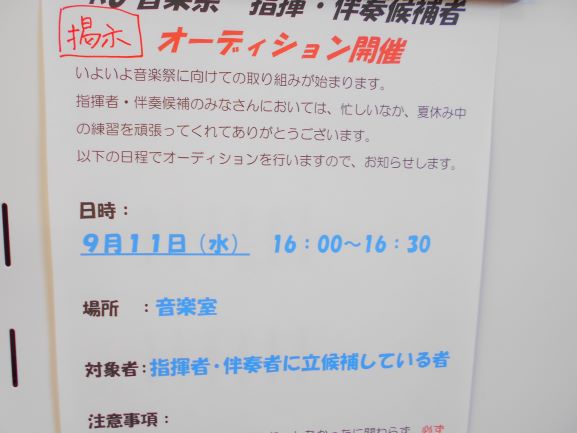 音楽祭 指揮・伴奏候補者
掲示
オーディション開催
いよいよ音楽祭に向けての取り組みが始まります。
指揮者・伴奏候補のみなさんにおいては、忙しいなか、夏休み中
の練習を頑張ってくれてありがとうございます。
以下の日程でオーディションを行いますので、お知らせします。
日時：
9月11日（水） 16：00～16：30
場所 ：音楽室
対象者：指揮者・伴奏者に立候補している者
注意事項：
必ず